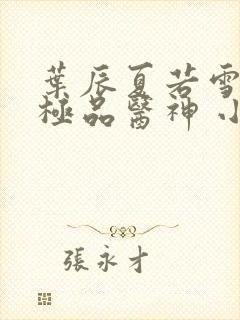 葉辰夏若雪
極品醫神 小
張永才